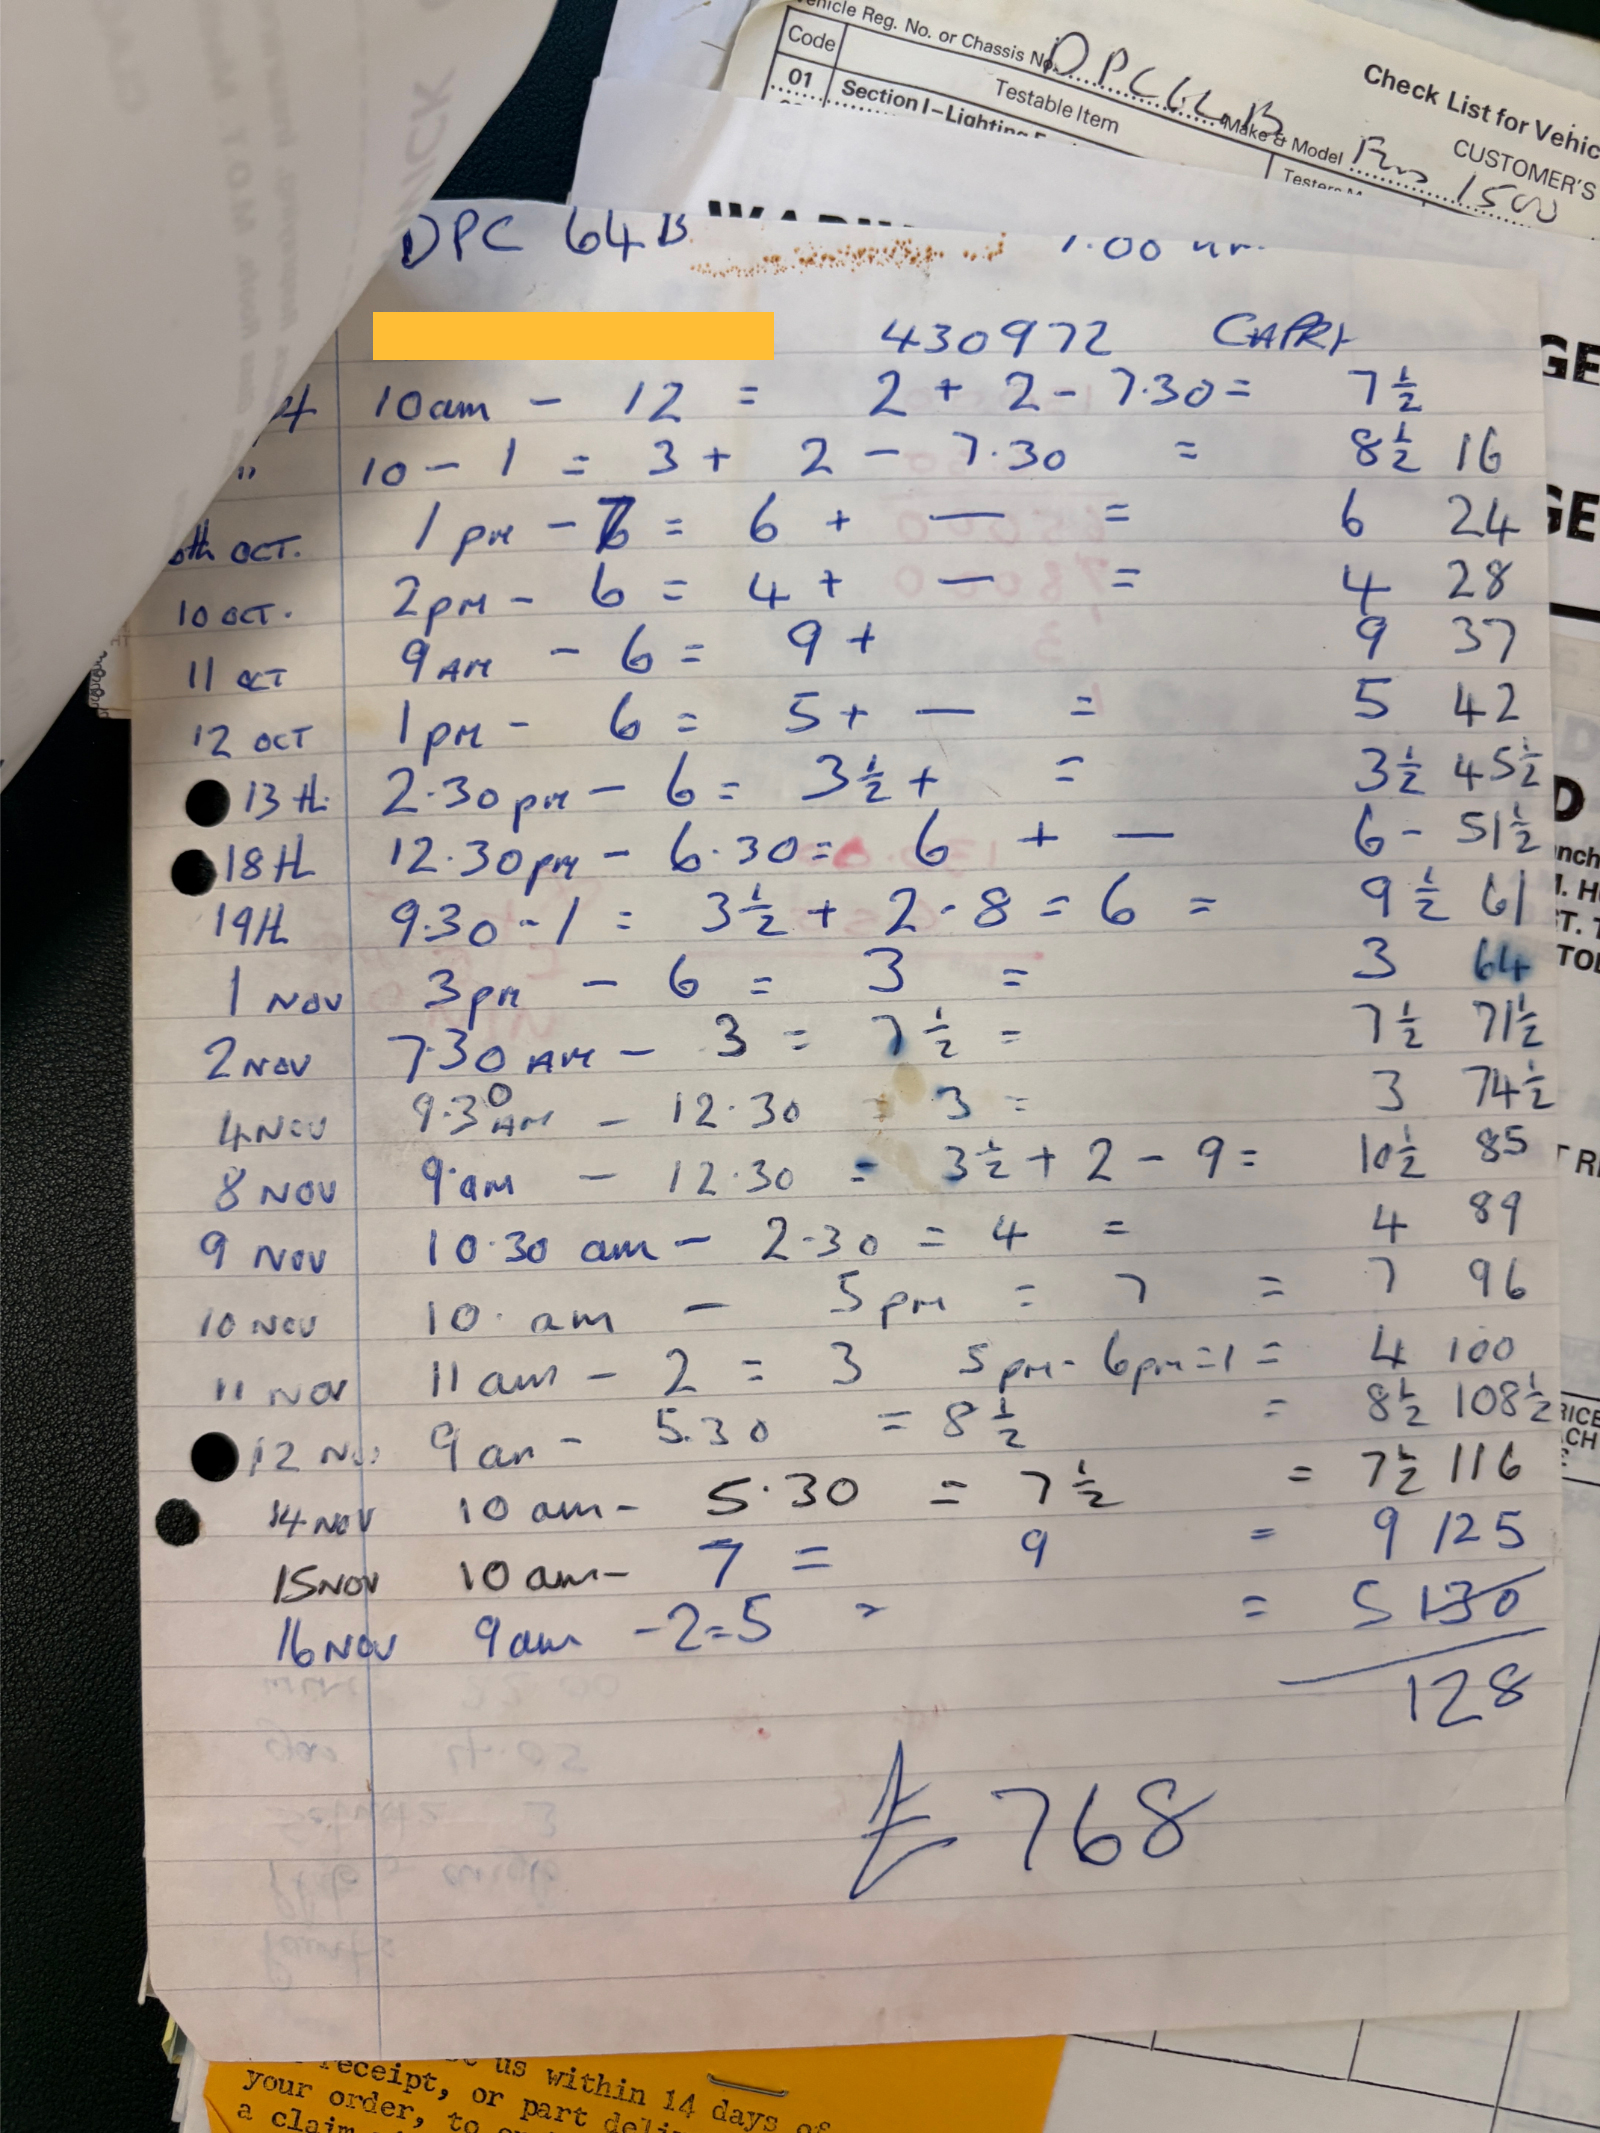 Vehicle Reg. No. or Chassis No. DPC64B
Make & Model Ford 1500
Check List for Vehic
CUSTOMER'S
Code
Testable Item
01 Section I-Lighting
DPC 64B
430972 CAPRI
10am - 12 = 2 + 2 - 7.30 = 7½
" 10 - 1 = 3 + 2 - 7.30 = 8½ 16
th OCT. 1pm - 7 = 6 + — = 6 24
10 OCT. 2pm - 6 = 4 + — = 4 28
11 OCT 9AM - 6 = 9 + 9 37
12 OCT 1pm - 6 = 5 + — = 5 42
13th 2.30pm - 6 = 3½ + = 3½ 45½
18th 12.30pm - 6.30 = 6 + — 6 - 51½
19th 9.30 - 1 = 3½ + 2 - 8 = 6 = 9½ 61
1 NOV 3pm - 6 = 3 = 3 64
2 NOV 7.30 AM - 3 = 7½ = 7½ 71½
4 NOV 9.30 AM - 12.30 = 3 = 3 74½
8 NOV 9.am - 12.30 = 3½ + 2 - 9 = 10½ 85
9 NOV 10.30 am - 2.30 = 4 = 4 89
10 NOV 10. am - 5pm = 7 = 7 96
11 NOV 11am - 2 = 3 5pm - 6pm = 1 = 4 100
12 Nov 9am - 5.30 = 8½ = 8½ 108½
14 NOV 10 am - 5.30 = 7½ = 7½ 116
15 NOV 10 am - 7 = 9 = 9 125
16 NOV 9am - 2 = 5 = = 5 130
128
£ 768
us within 14 days of
receipt, or part deli
your order, to
a claim